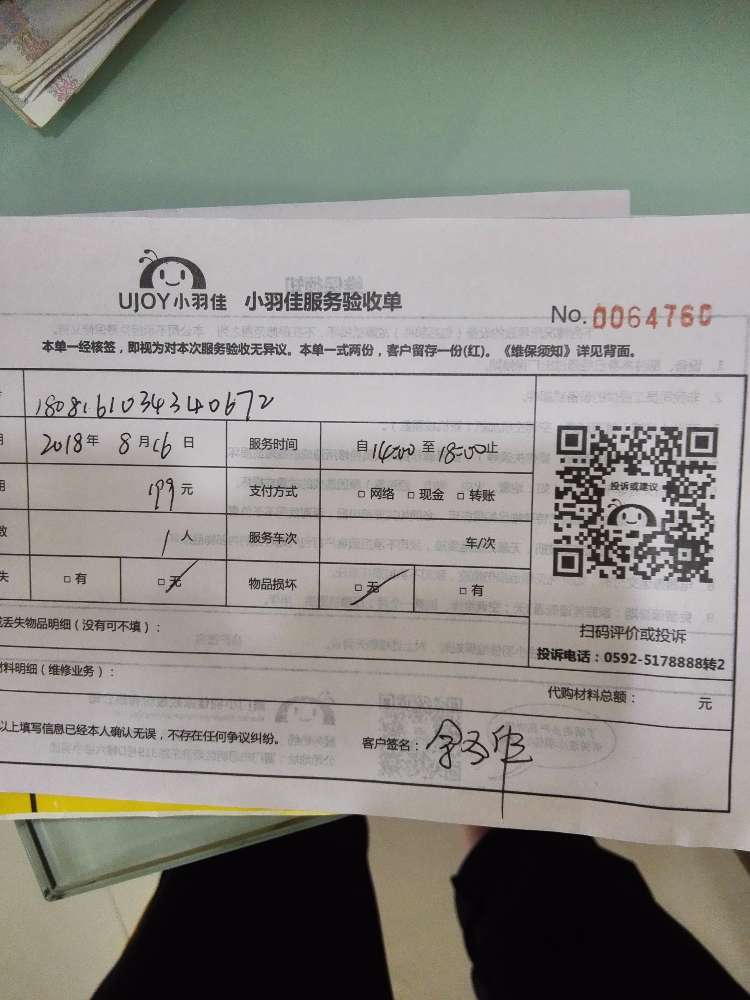 UJOY小羽佳 小羽佳服务验收单
No. 0064760
本单一经核签，即视为对本次服务验收无异议。本单一式两份，客户留存一份(红)。《维保须知》详见背面。
1808161034340672
2018年 8月16日 服务时间 自14:00至18:00止
用 199元 支付方式 □网络 □现金 □转账
数 1人 服务车次 车/次
失 □有 □无 物品损坏 □无 □有
投诉或建议
扫码评价或投诉
投诉电话：0592-5178888转2
或丢失物品明细（没有可不填）：
材料明细（维修业务）： 代购材料总额： 元
以上填写信息已经本人确认无误，不存在任何争议纠纷。 客户签名：